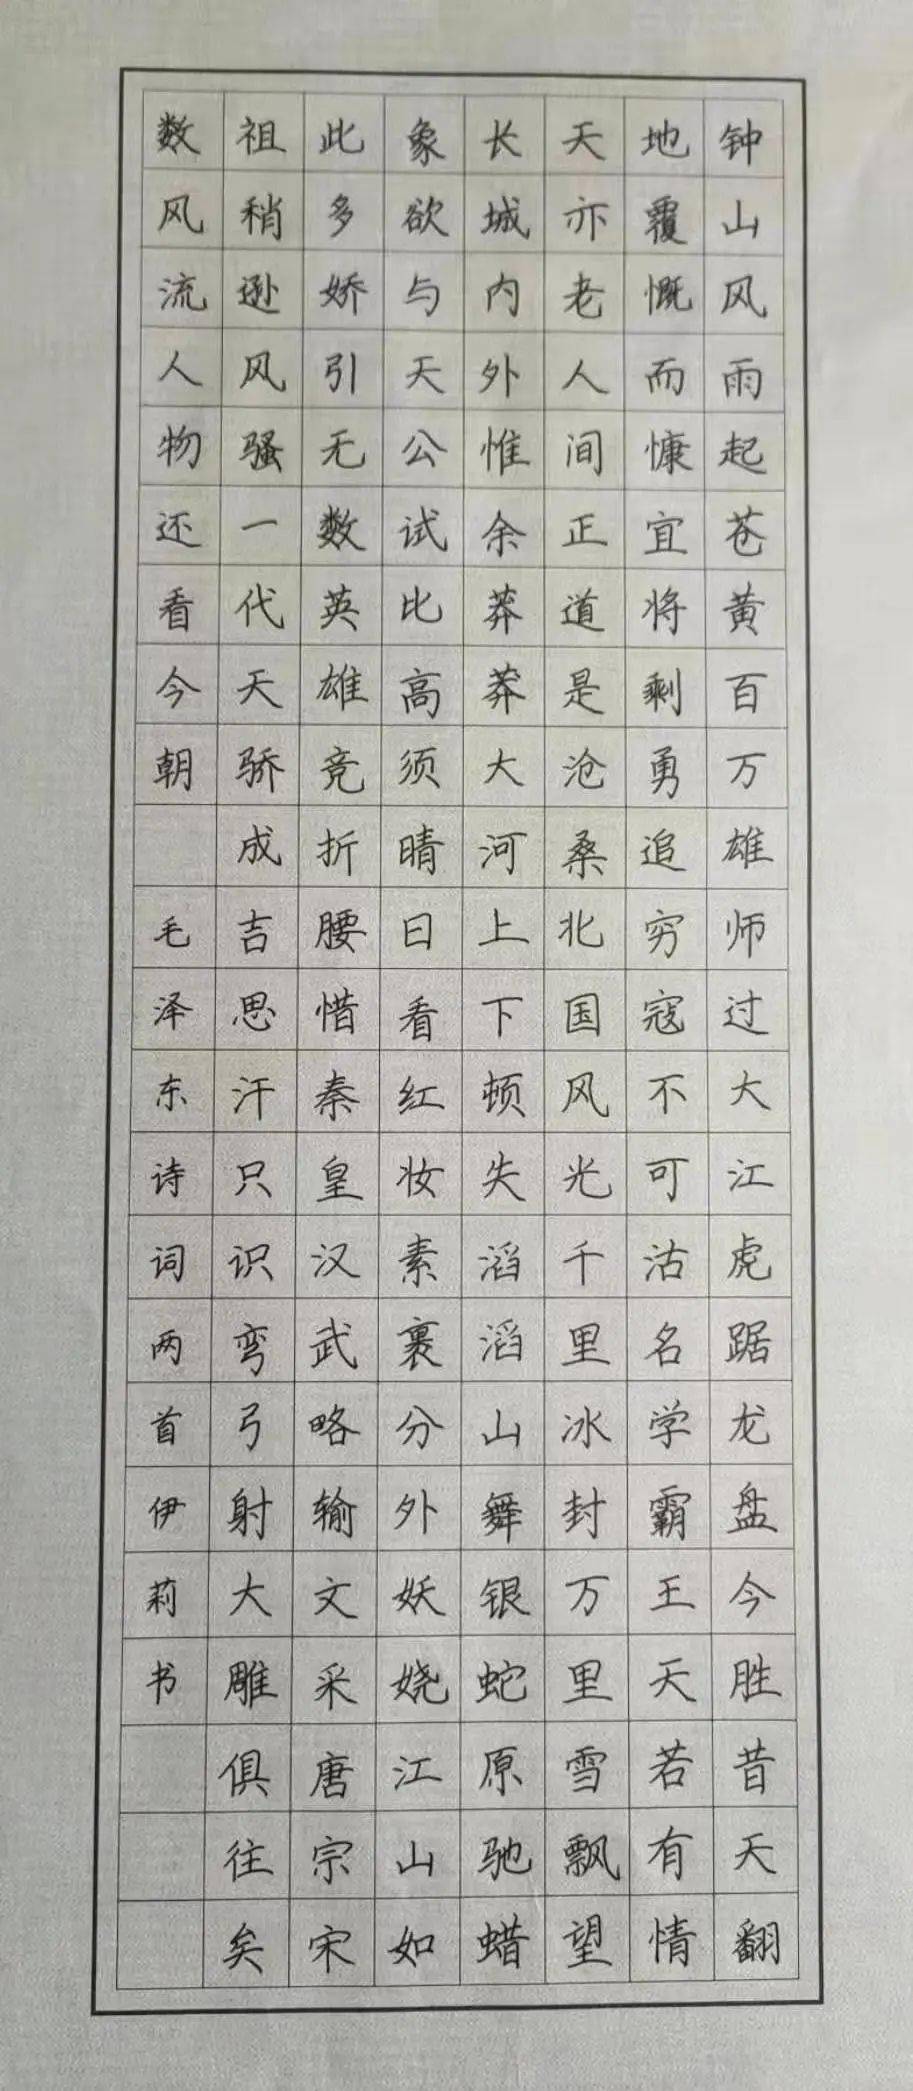 钟山风雨起苍黄百万雄师过大江虎踞龙盘今胜昔天翻
地覆慨而慷宜将剩勇追穷寇不可沽名学霸王天若有情
天亦老人间正道是沧桑北国风光千里冰封万里雪飘望
长城内外惟余莽莽大河上下顿失滔滔山舞银蛇原驰蜡
象欲与天公试比高须晴日看红妆素裹分外妖娆江山如
此多娇引无数英雄竞折腰惜秦皇汉武略输文采唐宗宋
祖稍逊风骚一代天骄成吉思汗只识弯弓射大雕俱往矣
数风流人物还看今朝 毛泽东诗词两首伊莉书